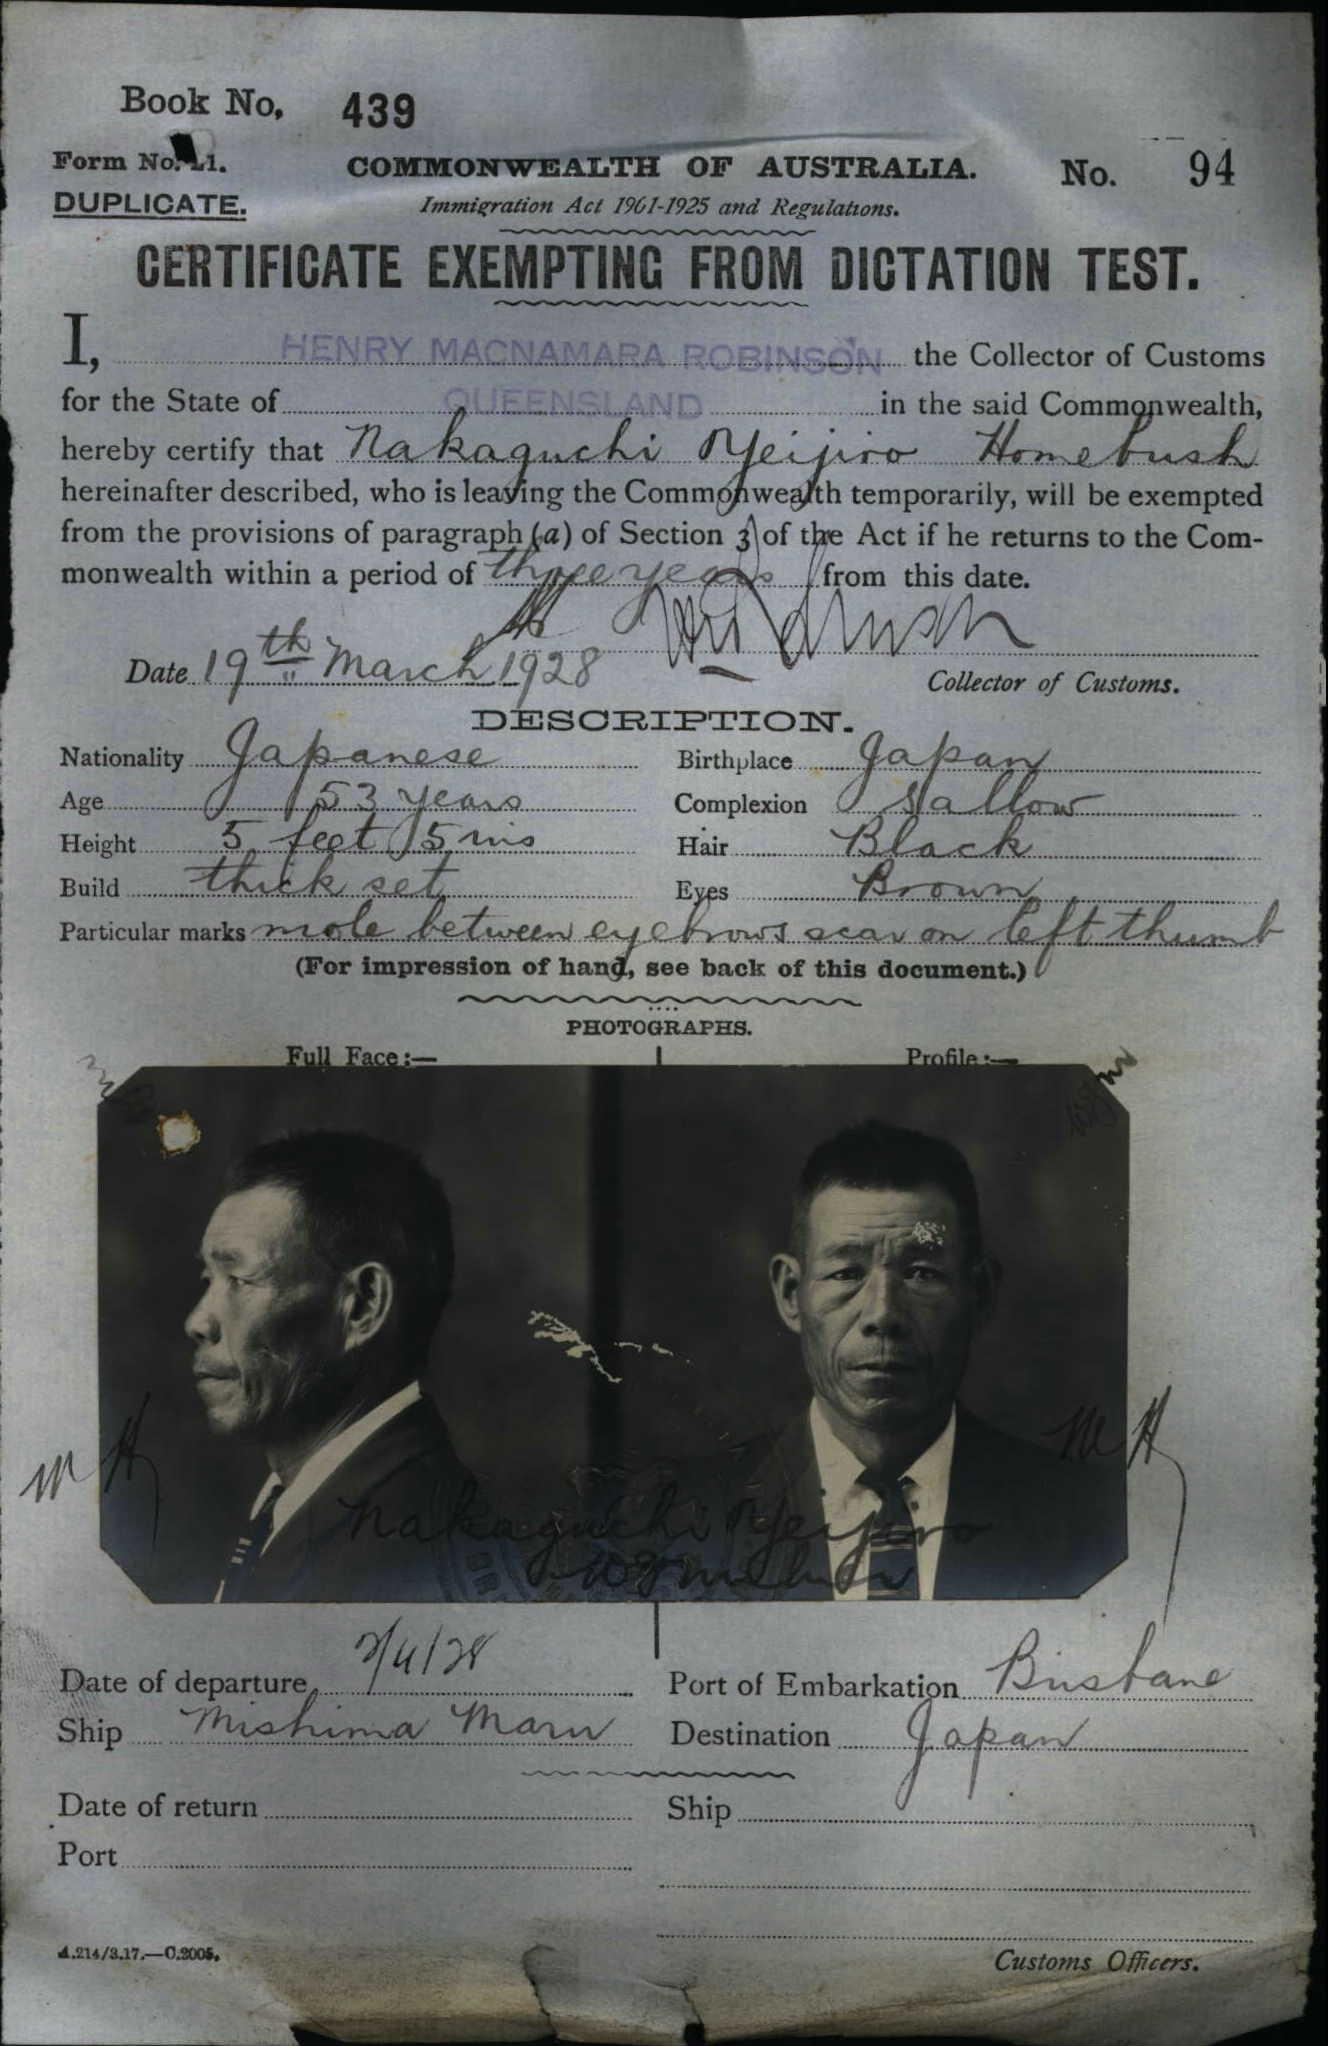 Book No. 439
Form No. 21.
COMMONWEALTH OF AUSTRALIA.
No. 94
DUPLICATE.
Immigration Act 1901-1925 and Regulations.
CERTIFICATE EXEMPTING FROM DICTATION TEST.
I, HENRY MACNAMARA ROBINSON the Collector of Customs
for the State of QUEENSLAND in the said Commonwealth,
hereby certify that Nakaguchi Yeijiro Homebush
hereinafter described, who is leaving the Commonwealth temporarily, will be exempted
from the provisions of paragraph (a) of Section 3 of the Act if he returns to the Com-
monwealth within a period of three years from this date.
Date 19th March 1928
Collector of Customs.
DESCRIPTION.
Nationality Japanese Birthplace Japan
Age 53 years Complexion Sallow
Height 5 feet 5 ins Hair Black
Build thick set Eyes Brown
Particular marks mole between eyebrows scar on left thumb
(For impression of hand, see back of this document.)
PHOTOGRAPHS.
Full Face:— Profile:—
M H M H
Nakaguchi Yeijiro
Date of departure 2/4/28 Port of Embarkation Brisbane
Ship Mishima Maru Destination Japan
Date of return Ship
Port
A.214/3.17.—C.2005. Customs Officers.